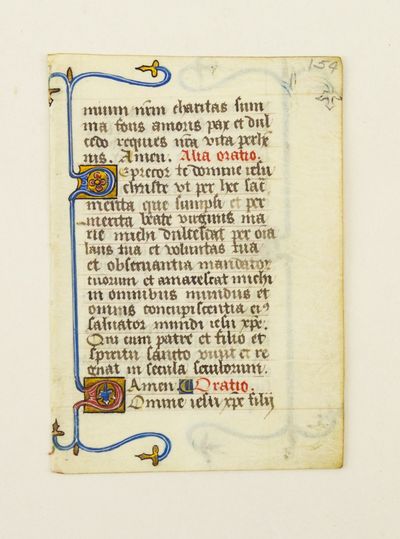 154
mium nr̄m charitas sum
ma fons amoris pax et dul
cedo requies nr̄a vita perhē
nis. Amen. Alia oratio.
Deprecor te domine iesu
christe vt per hec sāc
merita que sumpsi et per
merita beate virginis ma
rie michi dulcescat per oīa
laus tua et voluntas tua
et obseruantia mandatoꝝ
tuorum et amarescat michi
in omnibus mundus et
omnis concupiscentia eiꝰ
saluator mundi iesu xp̄e.
Qui cum patre et filio et
spiritu sancto viuit et re
gnat in secula seculorum.
Amen. Oratio.
Domine iesu xp̄e filij